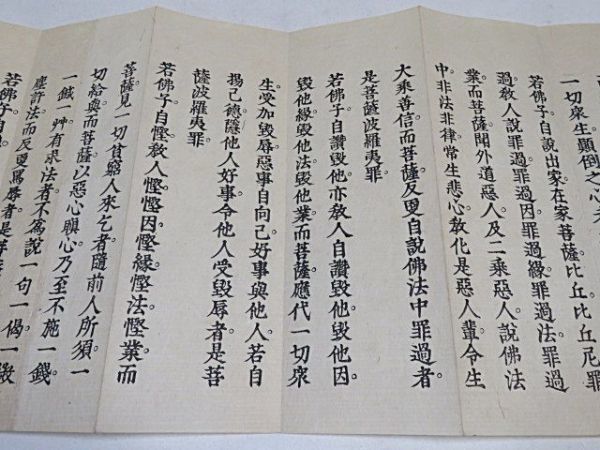 一切衆生顛倒之心
若佛子自說出家在家菩薩比丘比丘尼罪
過教人說罪過罪過因罪過緣罪過法罪過
業而菩薩聞外道惡人及二乘惡人說佛法
中非法非律常生悲心教化是惡人輩令生
大乘善信而菩薩反更自說佛法中罪過者
是菩薩波羅夷罪
若佛子自讚毀他亦教人自讚毀他毀他因
毀他緣毀他法毀他業而菩薩應代一切衆
生受加毀辱惡事自向己好事與他人若自
揚己德隱他人好事令他人受毀辱者是菩
薩波羅夷罪
若佛子自慳教人慳慳因慳緣慳法慳業而
菩薩見一切貧窮人來乞者隨前人所須一
切給與而菩薩以惡心瞋心乃至不施一錢
一鍼一艸有求法者不為說一句一偈一微
塵許法而反更罵辱者是菩
若佛子自